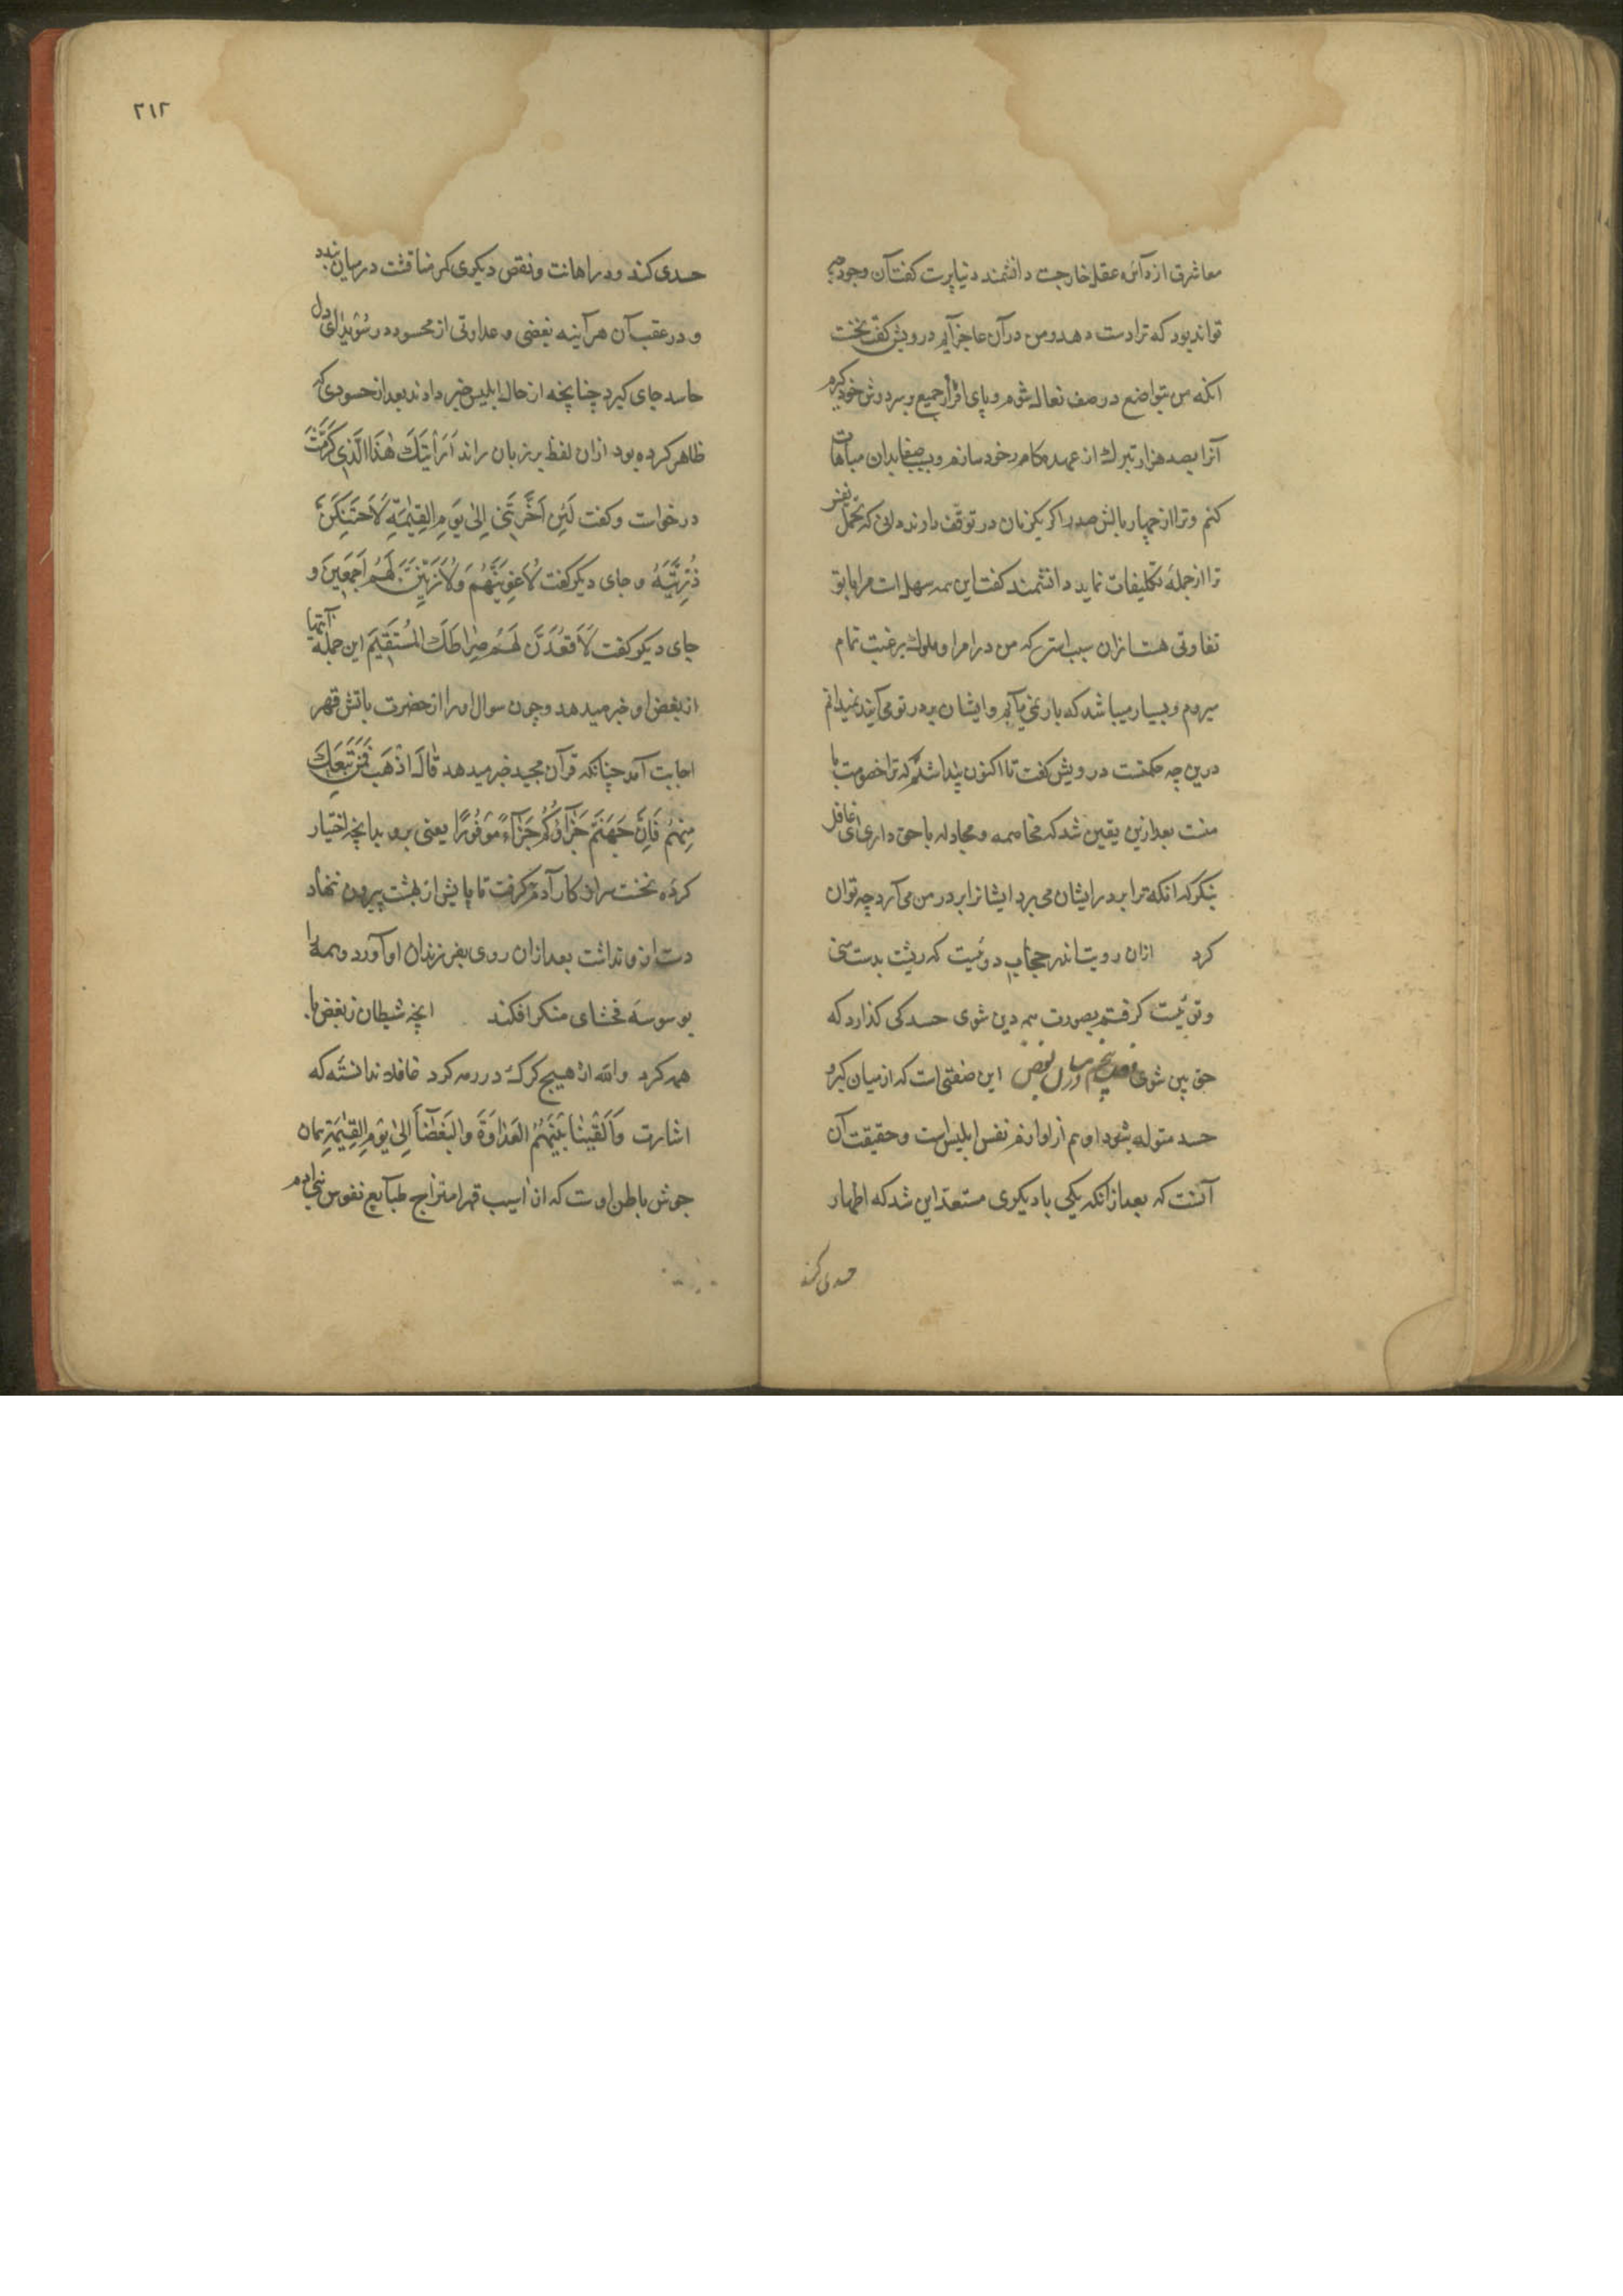 معاشرق از دآئره عقل خارجست دانشمند دنیاپرست کفت آن وجود چه
تواند بود که ترا دست دهد و من در آن عاجز آیم درویش کفت نخست
انکه من بتواضع در صف نعال شوم و پای افزار جمیع و بر دوش خود کیرم
آنرا بصد هزار تبرک از عهده کام خود سازم و بدان مباهات
کنم و ترا از چهار بالش صدر اکر یکزمان در توقف دارند دانی که تحمل نفس
ترا از جمله تکلیفات نماید دانشمند کفت این همه سهل است مرا با تو
تفاوتی هست ازان سبب است که من در امرا و ملوک برغبت تمام
میروم و بسیار میباشد که بار نمی یابم و ایشان بر در تو می آیند نمیدانم
درین چه حکمتست درویش کفت تا اکنون پنداشتم که ترا خصومت با
منست بعد ازین یقین شد که مخاصمه و مجادله با حق داری ای غافل
بنکر که انکه ترا بر در ایشان می برد ایشانرا بر در من می آرد چه توان
کرد ازان رویت اندر حجاب دوئیست که ریشت بدست
و توئیست کرفتم بصورت همه دین شوی حسد کی کذارد که
حق بین شوی این صفتی است که از میان کبر و
حسد متولد شود او هم از لوازم نفس ابلیس است و حقیقت آن
آنست که بعد از آنکه یکی با دیکری مستعد این شد که اظهار
حسدی کند
۲۱۲
حسدی کند و در اهانت و نقص دیکری کمر مناقشت در میان بندد
و در عقب آن هرآینه بغضی و عداوتی از محسود در سویدای دل
حاسد جای کیرد چنانچه از حال ابلیس خبر دادند بعد از حسودی که
ظاهر کرده بود ازان لفظ بر زبان راند اَرَاَیْتَكَ هٰذَا الَّذِی کَرَّمْتَ
درخواست و کفت لَئِنْ اَخَّرْتَنِی اِلٰی یَوْمِ الْقِیٰمَةِ لَاَحْتَنِکَنَّ
ذُرِّیَّتَهُ و جای دیکر کفت لَاُغْوِیَنَّهُمْ وَلَاُزَیِّنَنَّ لَهُمْ اَجْمَعِینَ و
جای دیکر کفت لَاَقْعُدَنَّ لَهُمْ صِرَاطَكَ الْمُسْتَقِیمَ این جمله آیتها
از بغض او خبر میدهد و چون سوال او را از حضرت باتش قهر
اجابت آمد چنانکه قرآن مجید خبر میدهد قَالَ اذْهَبْ فَمَنْ تَبِعَكَ
مِنْهُمْ فَاِنَّ جَهَنَّمَ جَزَآؤُکُمْ جَزَآءً مَوْفُورًا یعنی برو بدانچه اختیار
کردۀ نخست سر از کار آدم کرفت تا پایش از بهشت بیرون ننهاد
دست ازو نداشت بعد ازان روی بفرزندان او آورد و همه را
بوسوسه فحشای منکر افکند انچه شیطان ز بغض با
همه کرد والله ار هیچ کرک در رمه کرد غافلا ندانستۀ که
اشارت وَاَلْقَیْنَا بَیْنَهُمُ الْعَدَاوَةَ وَالْبَغْضَآءَ اِلٰی یَوْمِ الْقِیٰمَةِ همان
جوش باطن اوست که از آسیب قهر امتزاج طبآیع نفوس بنی آدم